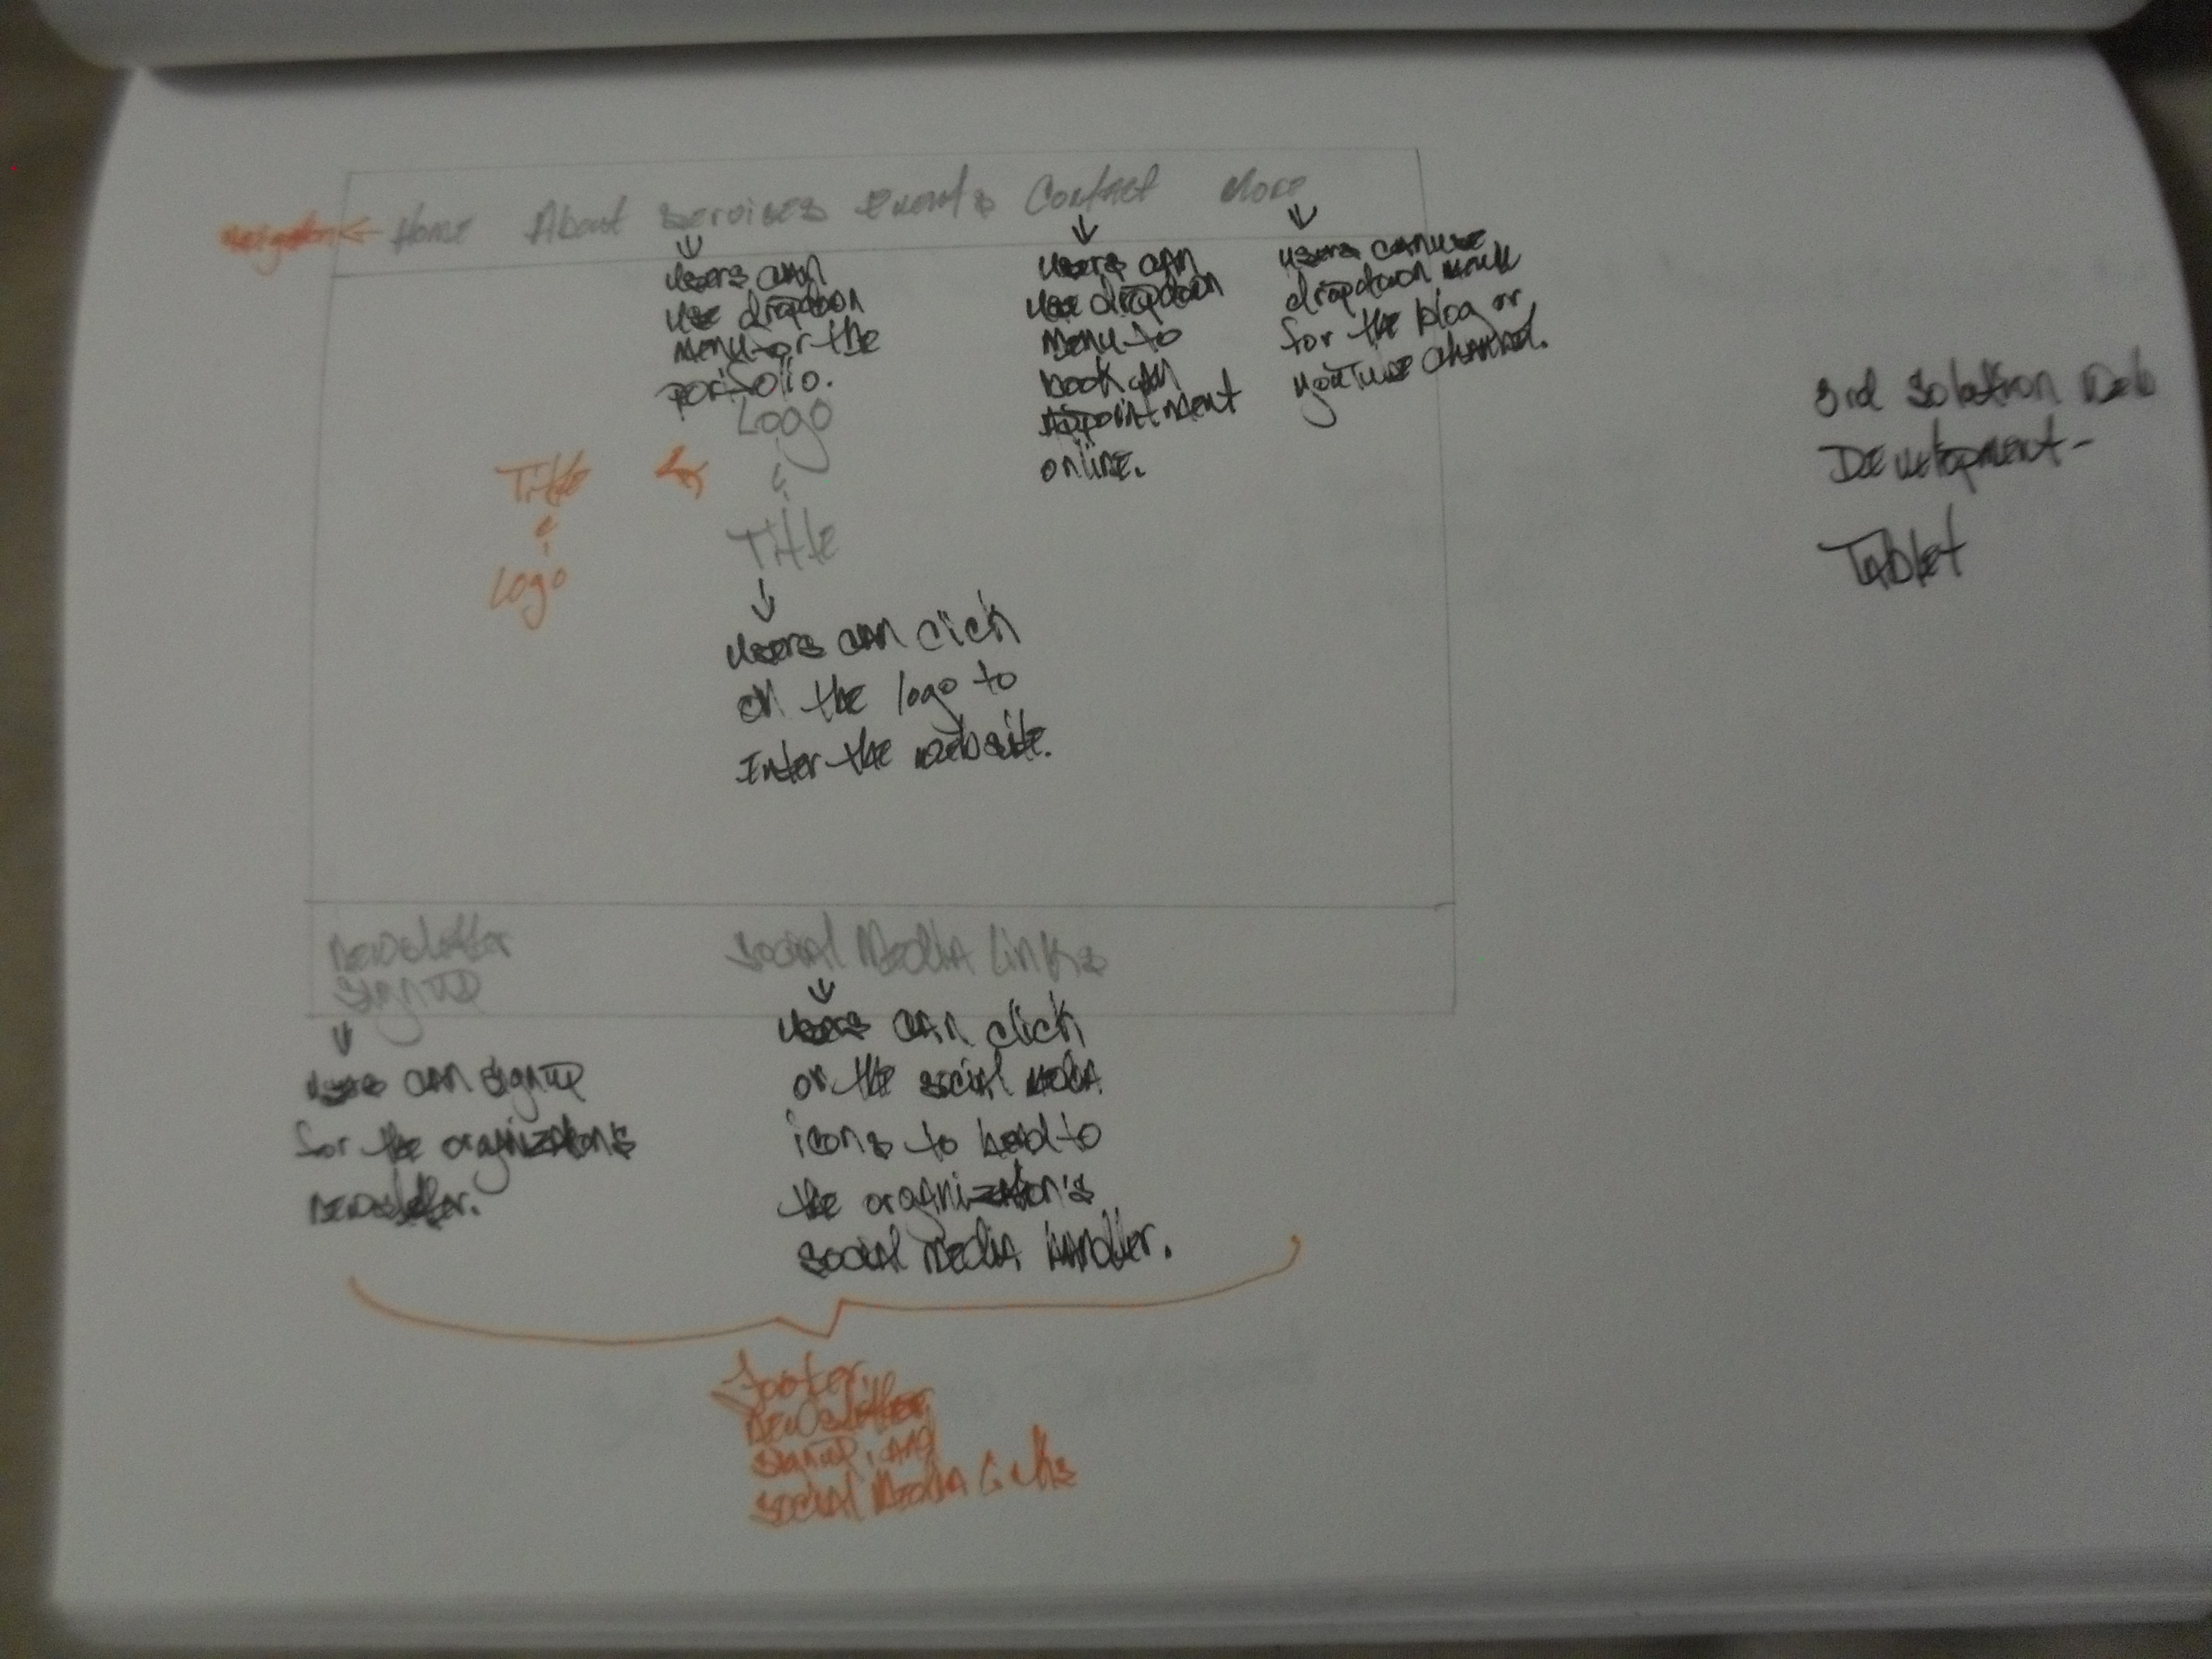 Navigation
Home About Services Events Contact More
Users can
use dropdown
menu for the
porfolio.
Users can
use dropdown
menu to
book an
appointment
online.
users can use
dropdown menu
for the blog or
youTube channel.
Logo
&
Title
Title
&
Logo
Users can click
on the logo to
Enter the website.
3rd Solution Web
Development-
Tablet
Newsletter
Sign up
Social Media Links
Users can sign up
for the organization's
newsletter.
Users can click
on the social media
icons to head to
the organization's
social media handler.
Footer
Newsletter
sign up, and
social media links